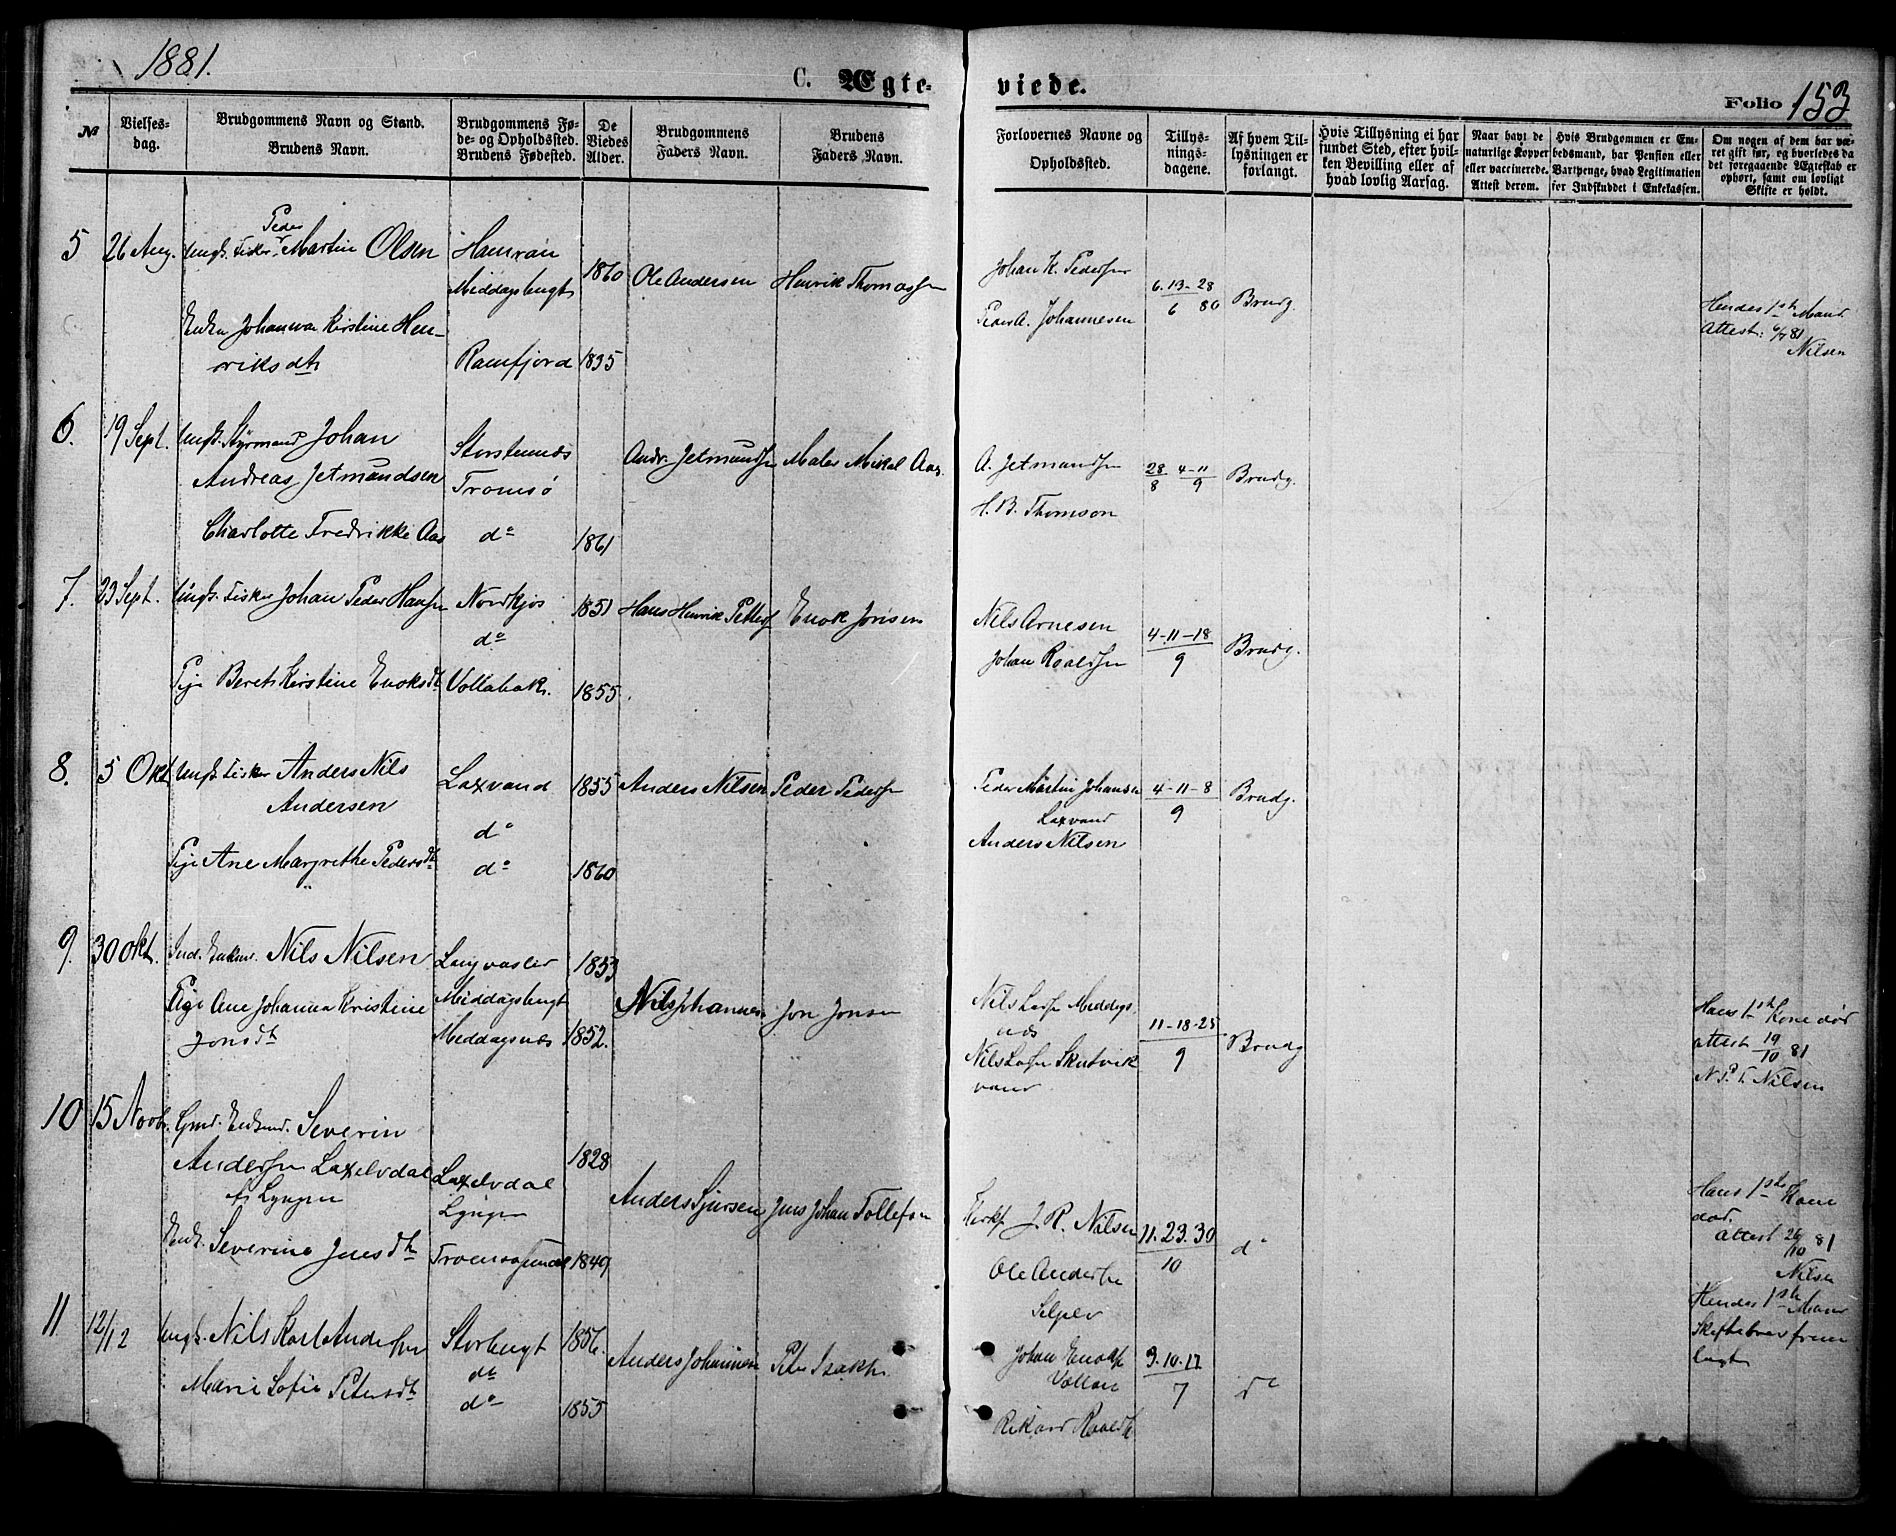 1881.
C. Ægte-
viede.
Folio 153
№
Vielses-
dag.
Brudgommens Navn og Stand.
Brudens Navn.
Brudgommens Fø-
de- og Opholdssted.
Brudens Fødested.
De
Viedes
Alder.
Brudgommens
Faders Navn.
Brudens
Faders Navn.
Forlovernes Navne og
Opholdssted.
Tillys-
nings-
dagene.
Af hvem Til-
lysningen er
forlangt.
Hvis Tillysning ei har
fundet Sted, efter hvil-
ken Bevilling eller af
hvad lovlig Aarsag.
Naar havt de
naturlige Kopper
eller vaccinerede.
Attest derom.
Hvis Brudgommen er Em-
bedsmand, har Pension eller
Vartpenge, hvad Legitimation
for Indskuddet i Enkekassen.
Om nogen af dem har væ-
ret gift før, og hvorledes da
det foregaaende Ægteskab er
ophørt, samt om lovligt
Skifte er holdt.
5 26 Aug. Ungk. Fisker Peder Martin Olsen
Middagsbugt
1860 Ole Andersen Henrik Thomassen
Enken Johanna Kirstine Hen-
riksdtr
Ramfjord 1835
Johan K. Pedersen
Peder A. Johannesen
6.13-28
6 80
Brudg.
Hendes 1ste Mand
Attest: 6/7 81
Nilsen
6. 19 Sept. Ungk. Styrmand Johan
Andreas Jetmundsen
Storstennæs
Tromsø
Andr. Jetmundsen Maler Mikal Aas
Charlotte Fredrikke Aas do 1861
A. Jetmundsen
H. B. Thomson
28 4-11
8 9
Brudg.
7. 23 Sept. Ungk. Fisker Johan Peder Hansen
Nordkjos
do
1851 Hans Henrik Petters Enok Jonsen
Pige Beret Kirstine Enoksdt Vollabak. 1855.
Nils Arnesen
Johan Roaldsen
4-11-18
9
Brudg.
8. 5 Okt. Ungk. Fisker Anders Nils
Andersen
Laxvand
do
1855 Anders Nilsen Peder Pedersen
Pige Ane Margrethe Pedersdt do 1860
Peder Martin Johansen
Laxvand
Anders Nilsen
4-11-8
9
Brudg.
9. 30 Okt. Ind. Enkem. Nils Nilsen
1853
Pige Ane Johanna Kristine
Jonsdt
Middagsbugt
Middagsnæs 1852.
Nils Johannes. Jon Jonsen
Nils Larsen Meddags
næs
Nils Larsen Skutvik
vand
11-18-25
9
Brudg
Hans 1ste Kone død
attest 19/10 81
N. P. T. Nilsen
10 15 Novb. Gmd. Enkemd. Severin
Andersen Laxelvdal
af Lyngen
Laxelvdal
Lyngen
1828
Anders Sjursen Jens Johan Tollefsen
Enk. Severine Jensdt Tromsøsundet 1849
Kirks. J. R. Nilsen
Ole Andersen
11.23.30
10
do
Hans 1ste Kone
død.
Attest 26/10 81
Nilsen
11. 12/12 Ungk. Nils Karl Andersen
Storbugt
do
1856.
Anders Johannesen Peter Isaksen
Marie Sofie Petersdt do 1855
Johan Enoksen
Vollan
Rikard Roaldsen
3.10.17
7
do
Hendes 1ste Mand
Skiftebrev frem
lagt